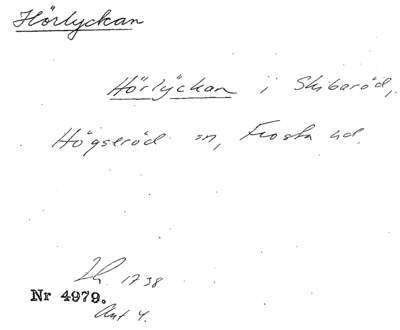 Hörlyckan
Hörlÿckan i Skibaröd,
Högseröd sn, Frosta hd.
Lh. 1738
Nr 4979.
Akt 4.